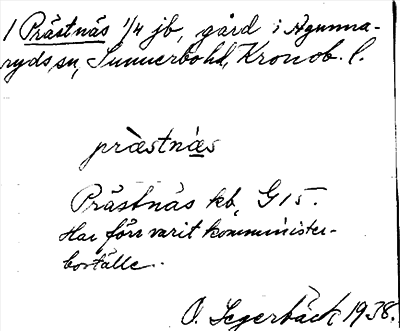 1 Prästnäs 1/4 jb, gård i Agunna-
ryds sn, Sunnerbo hd, Kronob. l.
præ̀stnæs
Prästnäs kb, G15.
Har förr varit komminister-
boställe.
O. Segerbäck 1938.